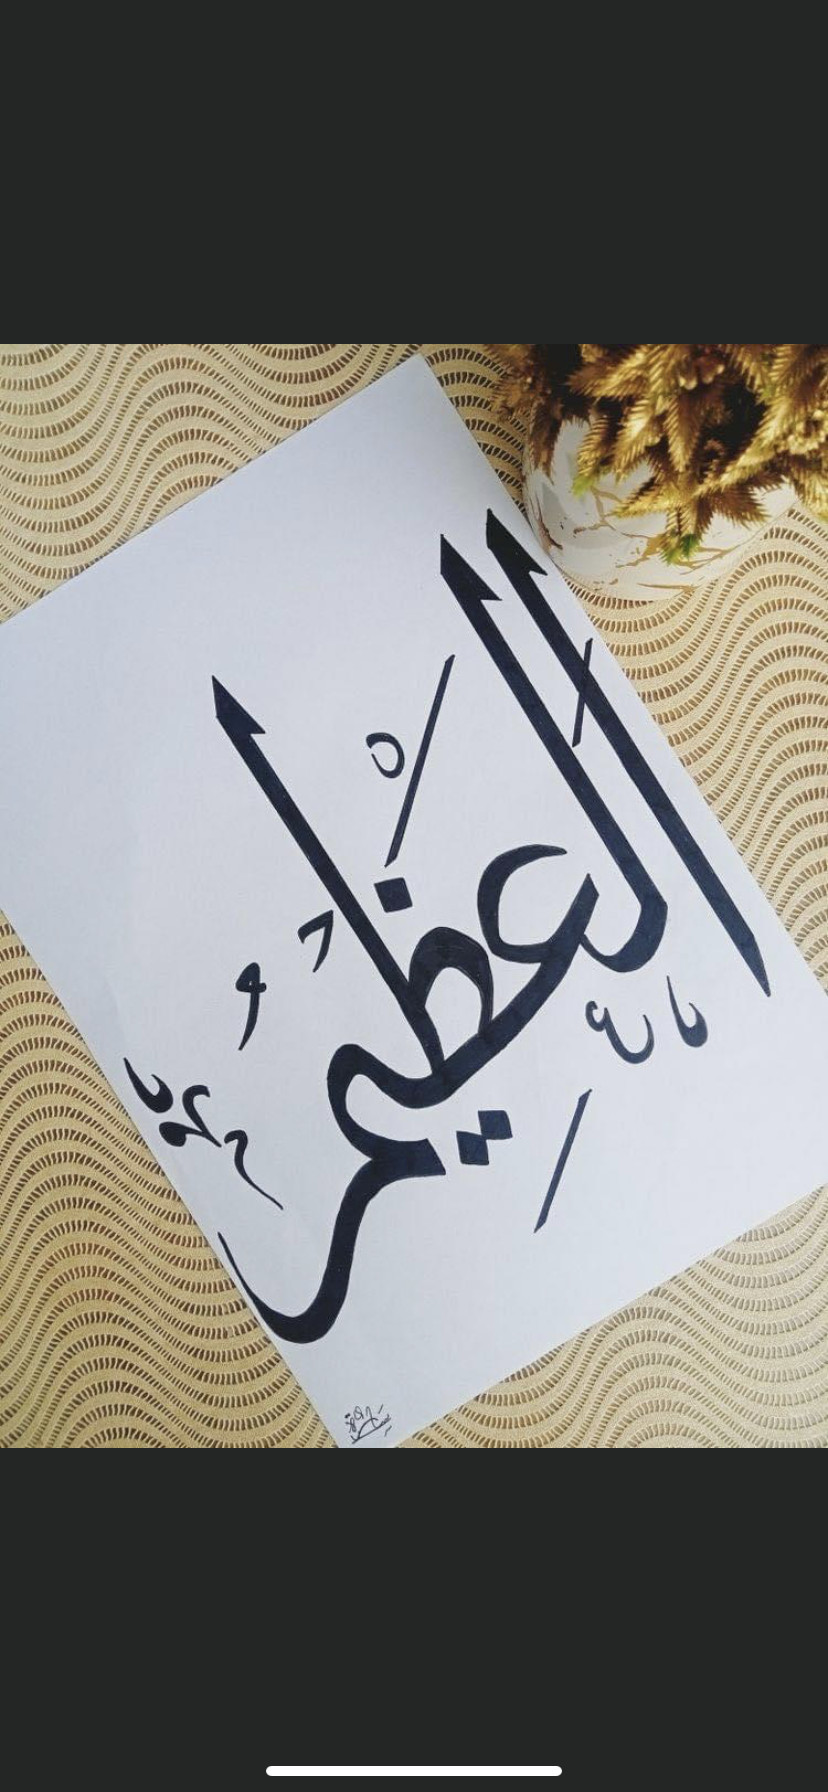 العَظِيمُ